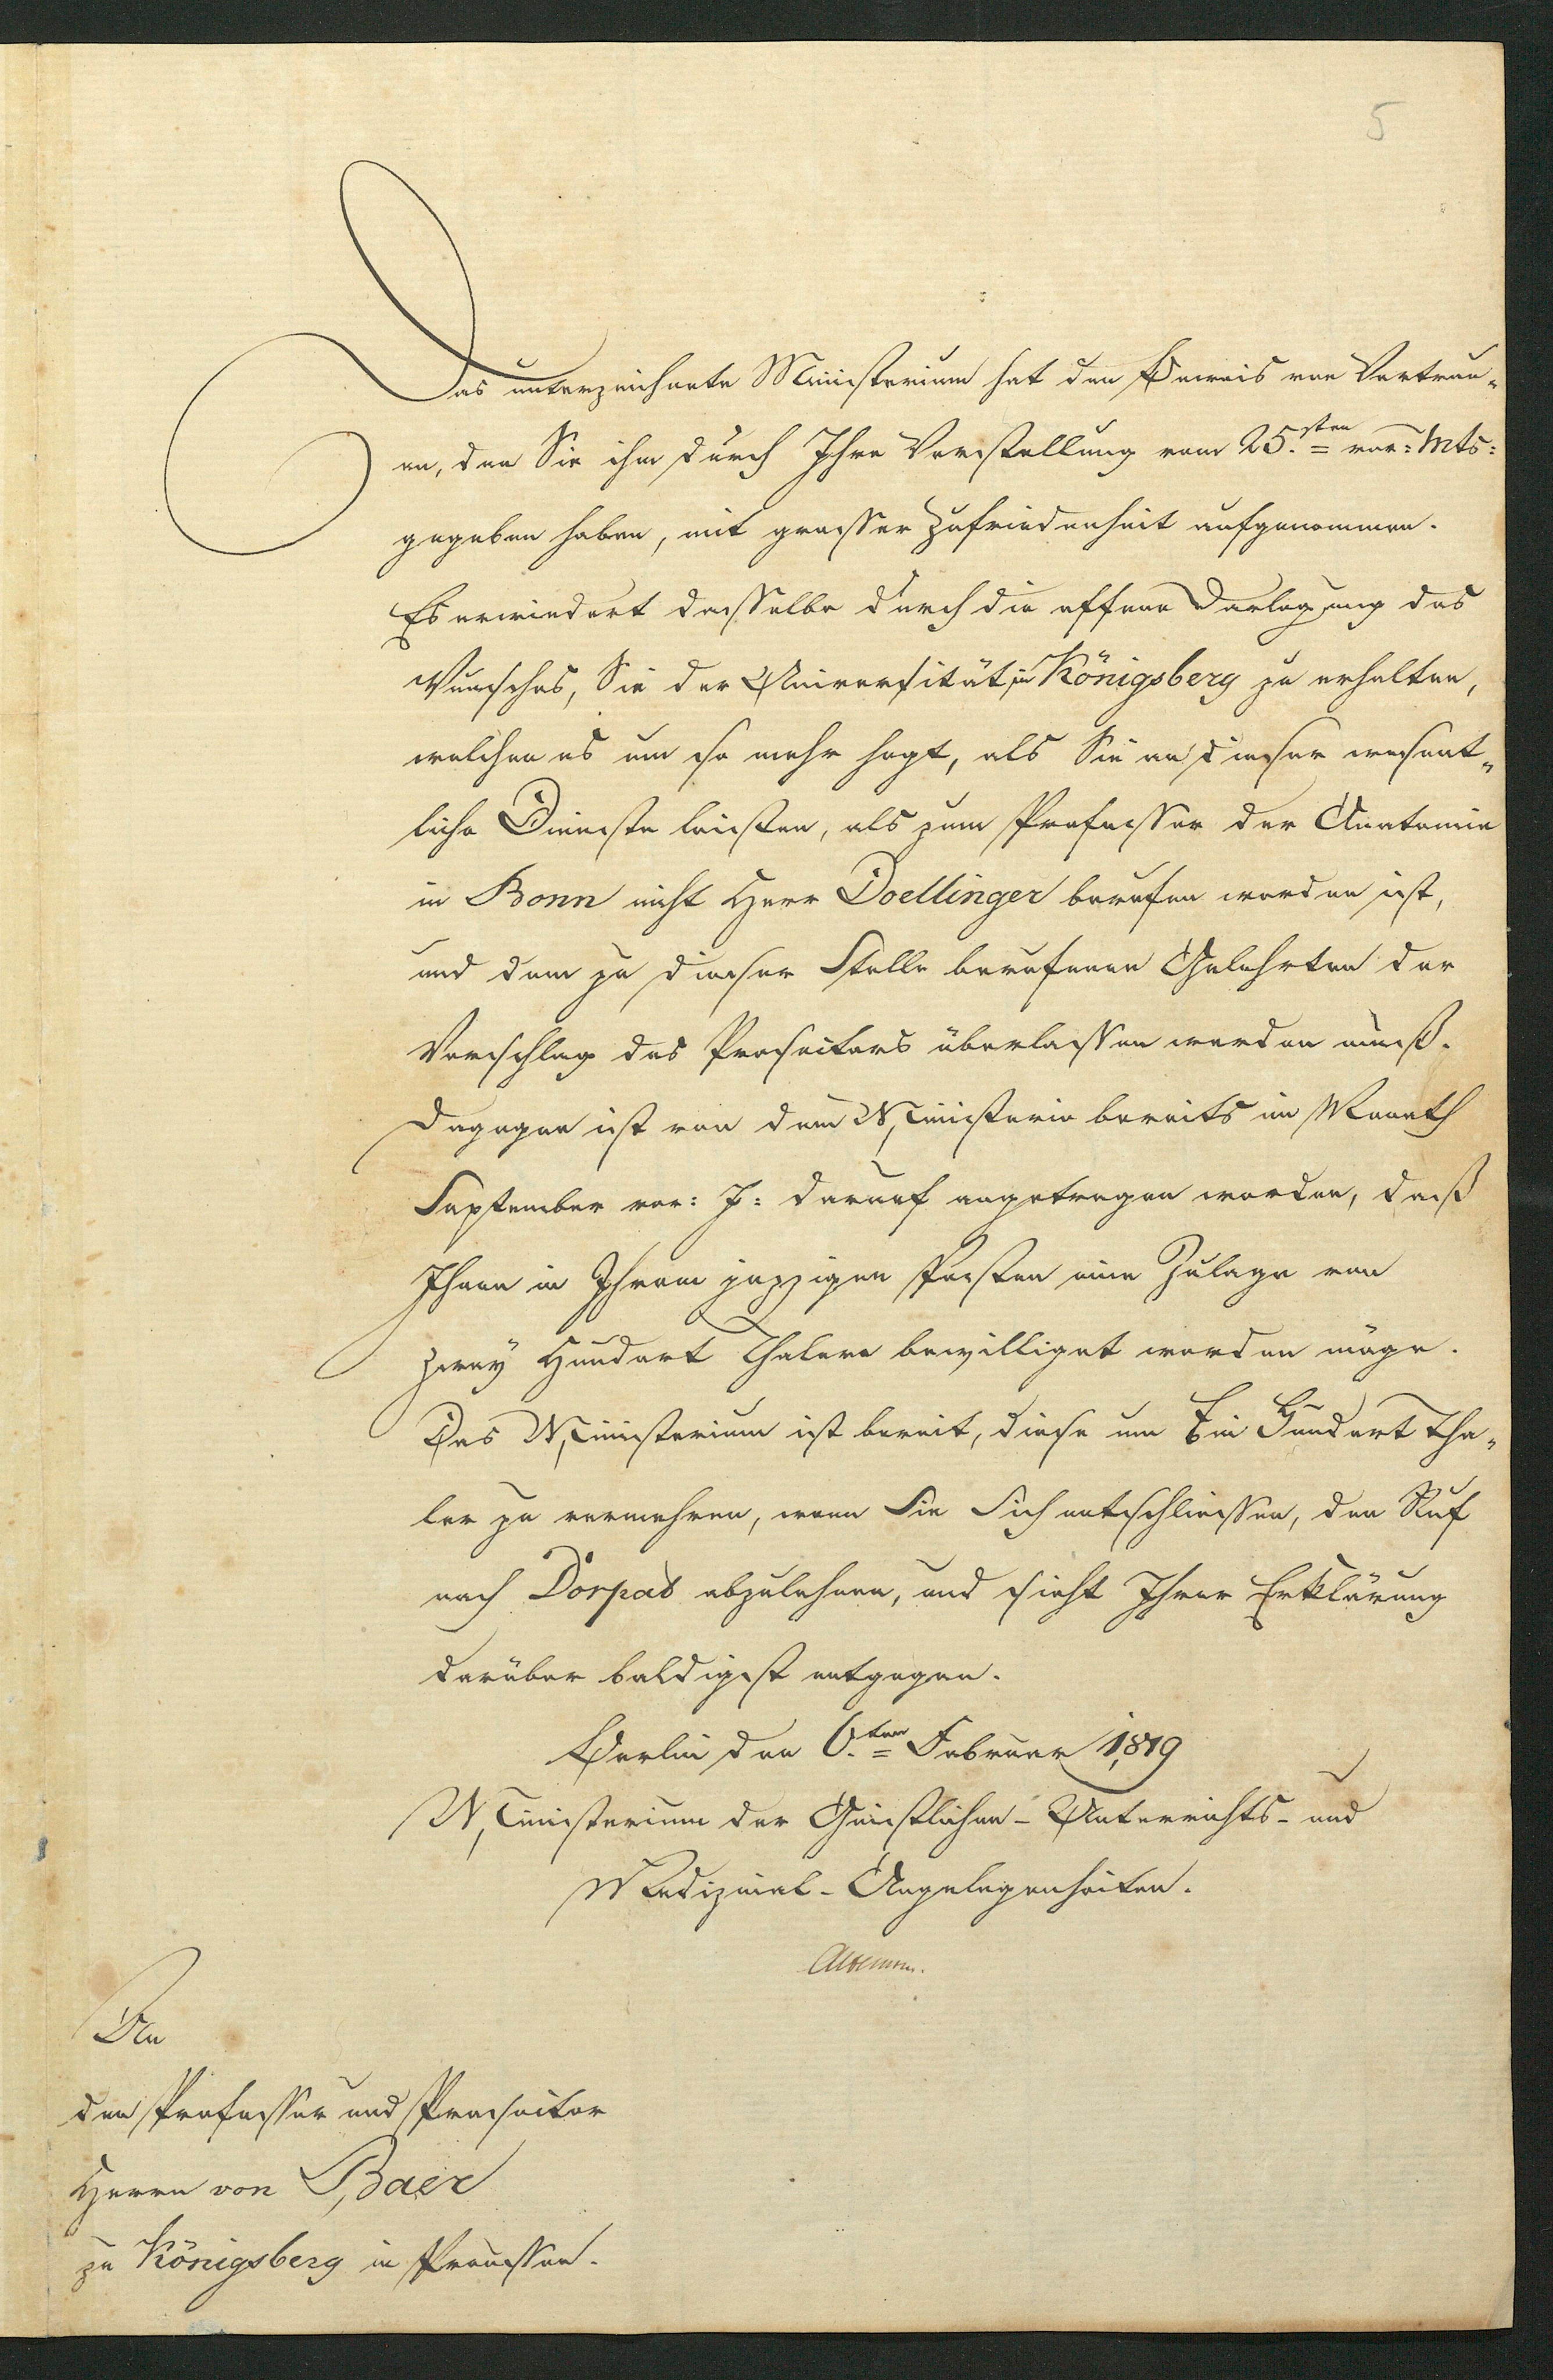 5
Das unterzeichnete Ministerium hat den Beweis von Vertrau-
en, den Sie ihm durch Ihre Vorstellung vom 25.sten vor: Mts:
gegeben haben, mit grosser Zufriedenheit aufgenommen.
Es erwiedert dasselbe durch die offene Darlegung des
Wunsches, Sie der Universität in Königsberg zu erhalten,
welchen es um so mehr hegt, als Sie an dieser wesent-
liche Dienste leisten, als zum Professor der Anatomie
in Bonn nicht Herr Doellinger berufen worden ist,
und dem zu dieser Stelle berufenen Gelehrten der
Vorschlag des Prosectors überlassen werden muß.
Dagegen ist von dem Ministerio bereits im Monath
September vor: J: darauf angetragen worden, daß
Ihnen in Ihrem jezzigen Posten eine Zulage von
Zwey Hundert Thalern bewilliget werden möge.
Das Ministerium ist bereit, diese um Ein Hundert Tha-
ler zu vermehren, wenn Sie Sich entschliessen, den Ruf
nach Dorpat abzulehnen, und sieht Ihrer Erklärung
darüber baldigst entgegen.
Berlin den 6.ten Februar 1819
Ministerium der Geistlichen- Unterrichts- und
Medizinal-Angelegenheiten.
Altenstein.
An
den Professor und Prosector
Herrn von Baer
zu Königsberg in Preussen.